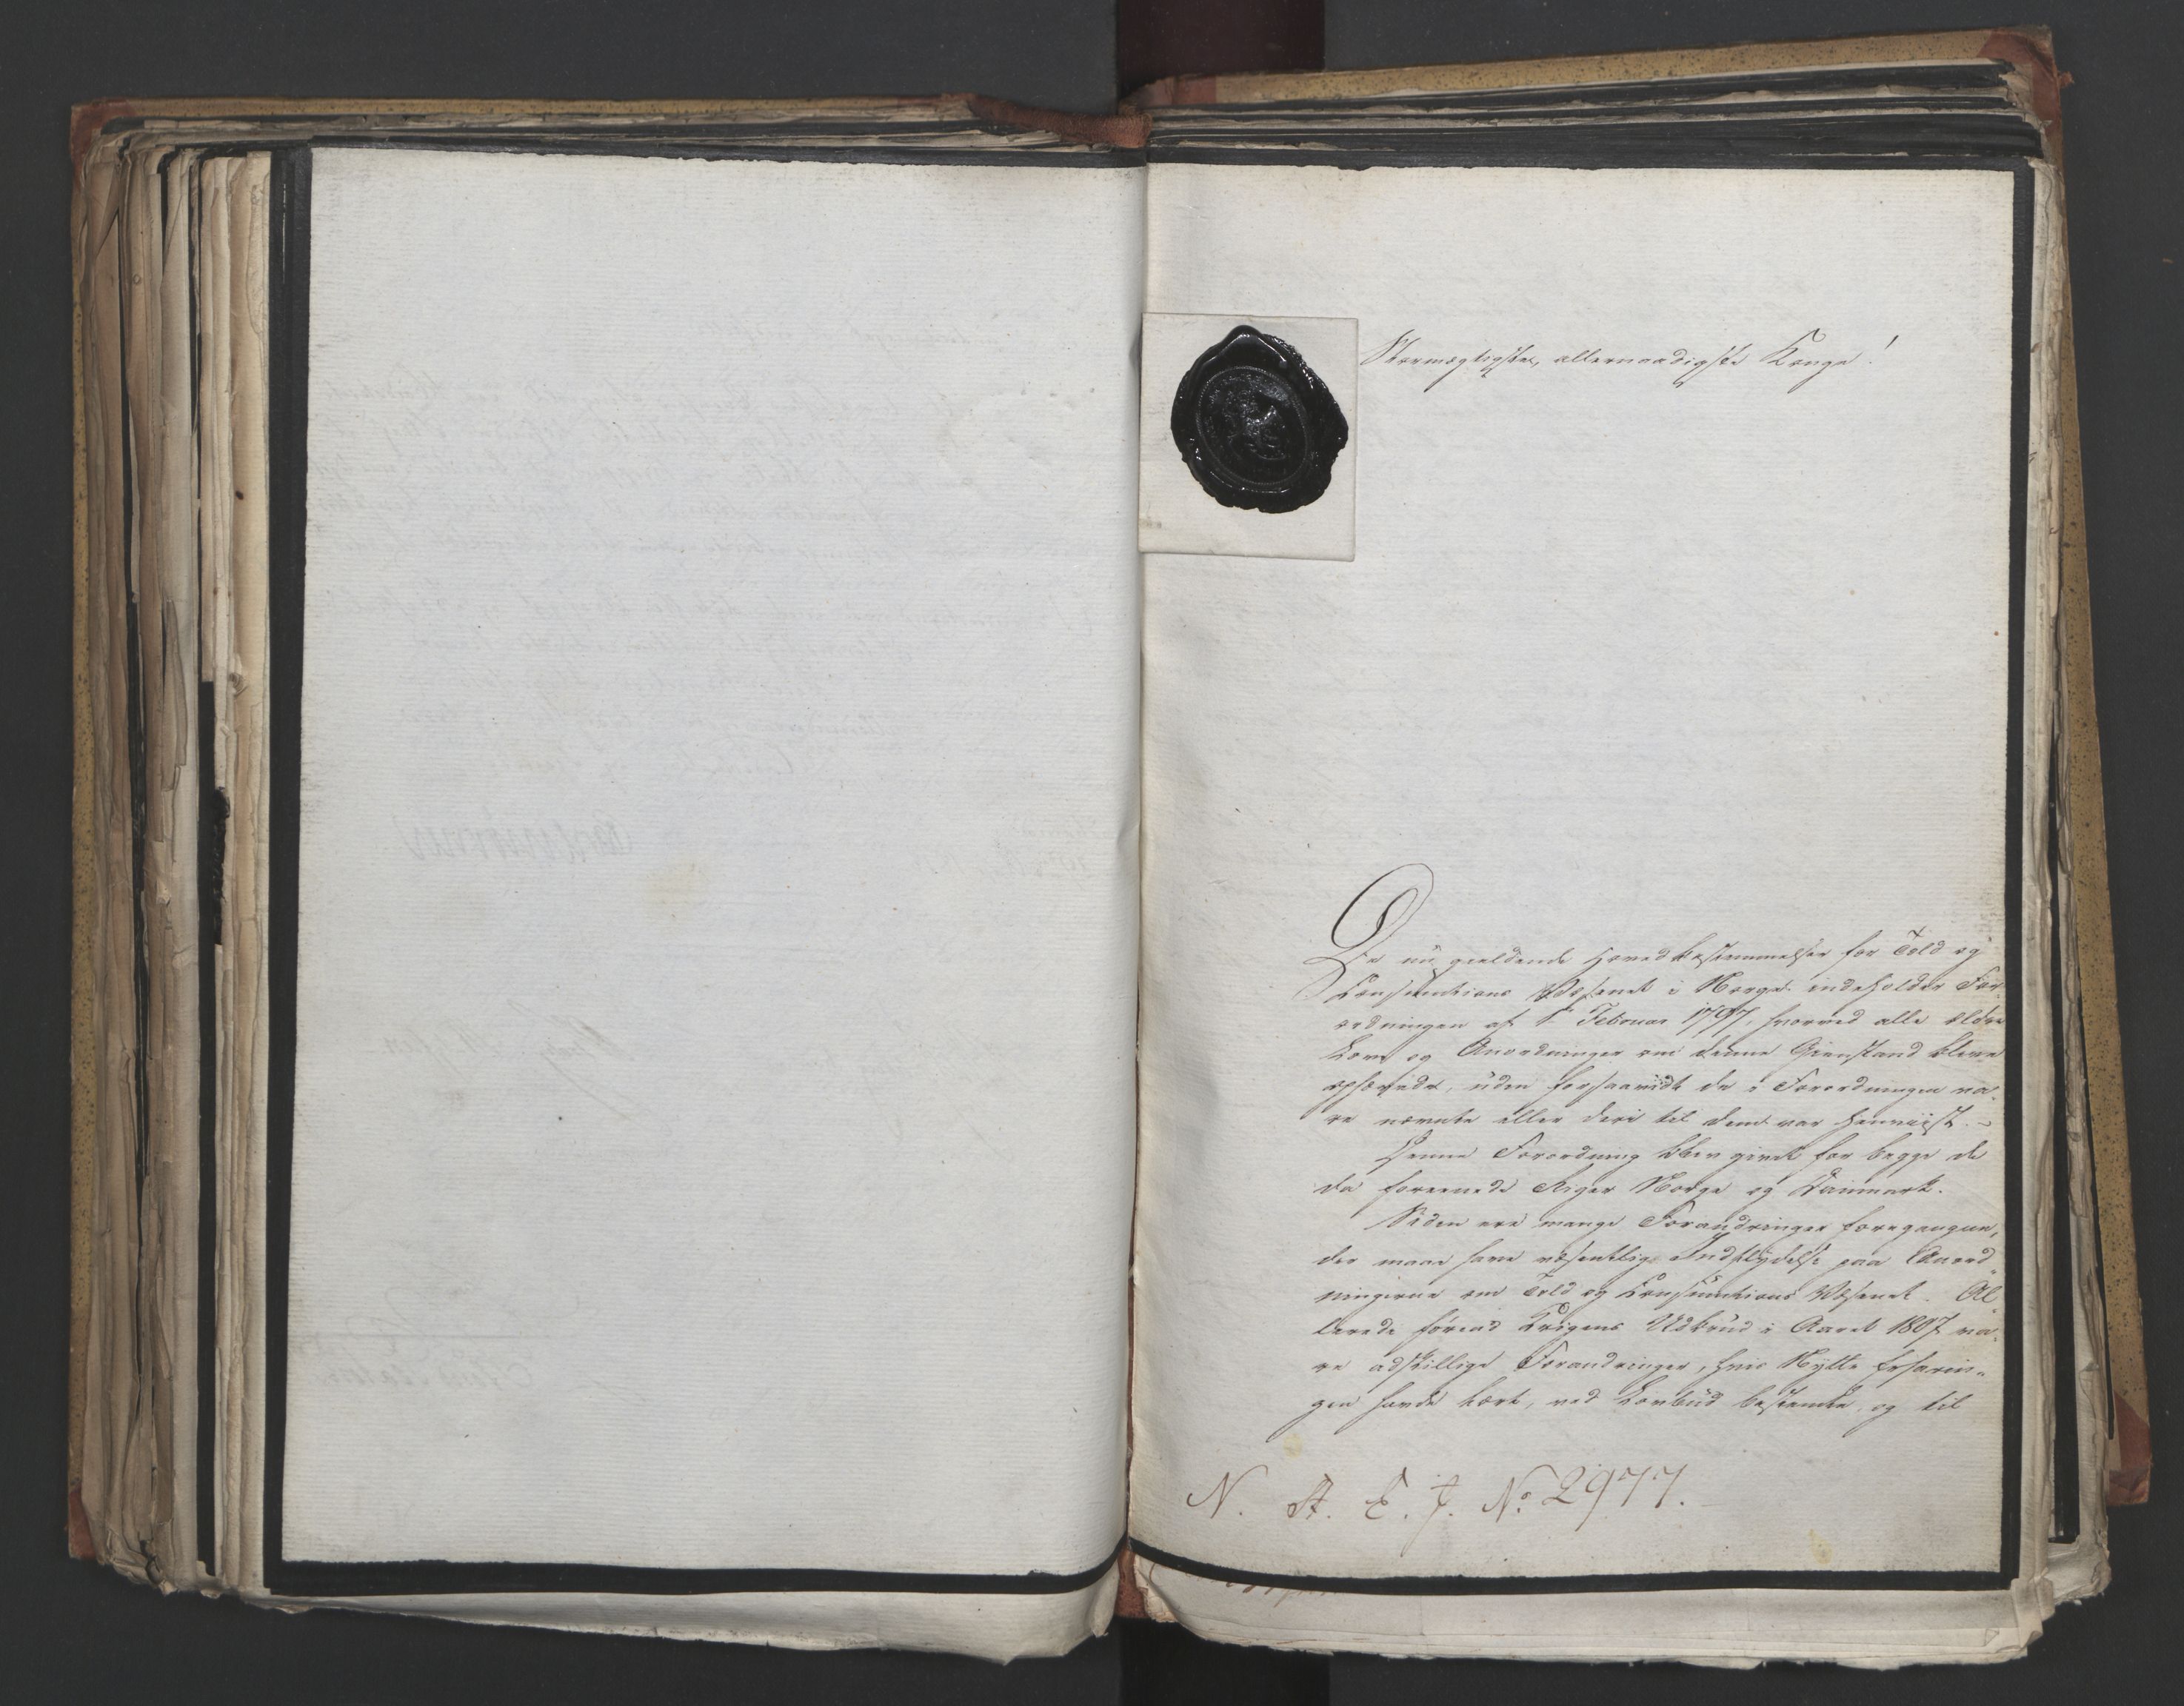 Stormægtigste, allernaadigste Konge!
De nu gieldende Hovedbestemmelser for Told og
Consumtions Væsenet i Norge indeholder For-
ordningen af 1ste Februar 1797, hvorved alle ældre
Love og Anordninger om denne Gienstand bleve
ophævede, uden forsaavidt de i Forordningen va-
re nævnte eller deri til dem var henviist. –
Denne Forordning blev givet for begge de
da forenede Riger Norge og Danmark.
Siden ere mange Forandringer foregangne,
der maae have væsentlig Indflydelse paa Anord-
ningerne om Told og Consumtions Væsenet. Al-
lerede førend Krigens Udbrud i Aaret 1807 va-
re adskillige Forandringer, hvis Nytte Erfarin-
gen havde lært, ved Lovbud bestemte, og til
N. St. E. J. No 2977.